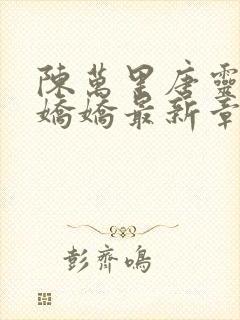 陳萬里唐靈
嬌嬌最新章
彭齊鳴